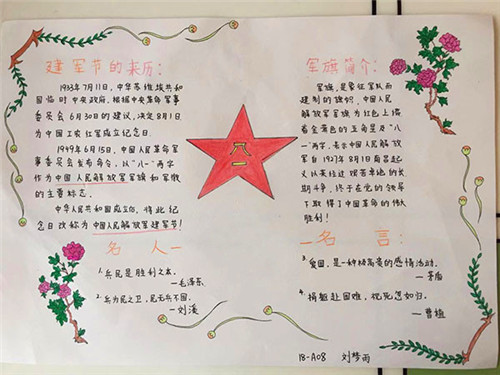 建军节的来历:
1933年7月11日,中华苏维埃共和
国临时中央政府,根据中央革命军事
委员会6月30日的建议,决定8月1日
为中国工农红军成立纪念日.
1949年6月15日,中国人民革命军
事委员会发布命令,以"八一"两字
作为中国人民解放军军旗和军徽
的主要标志.
中华人民共和国成立后,将此纪
念日改称为中国人民解放军建军节!
八一
军旗简介:
军旗,是象征军队而
建制的旗帜.中国人民
解放军军旗为红色上缀
着金黄色的五角星及"八
一"两字,表示中国人民解放
军自1927年8月1日南昌起
义以来经过艰苦卓绝的长
期斗争,终于在党的领导
下取得了中国革命的伟大
胜利!
名人一
1.兵民是胜利之本.
—毛泽东
2.兵为民之卫,民无兵不固.
—刘
一名言:
3.爱国,是一种的感情
—茅盾
4.捐躯赴国难,视死忽如归.
—曹植
18-A08 刘梦雨